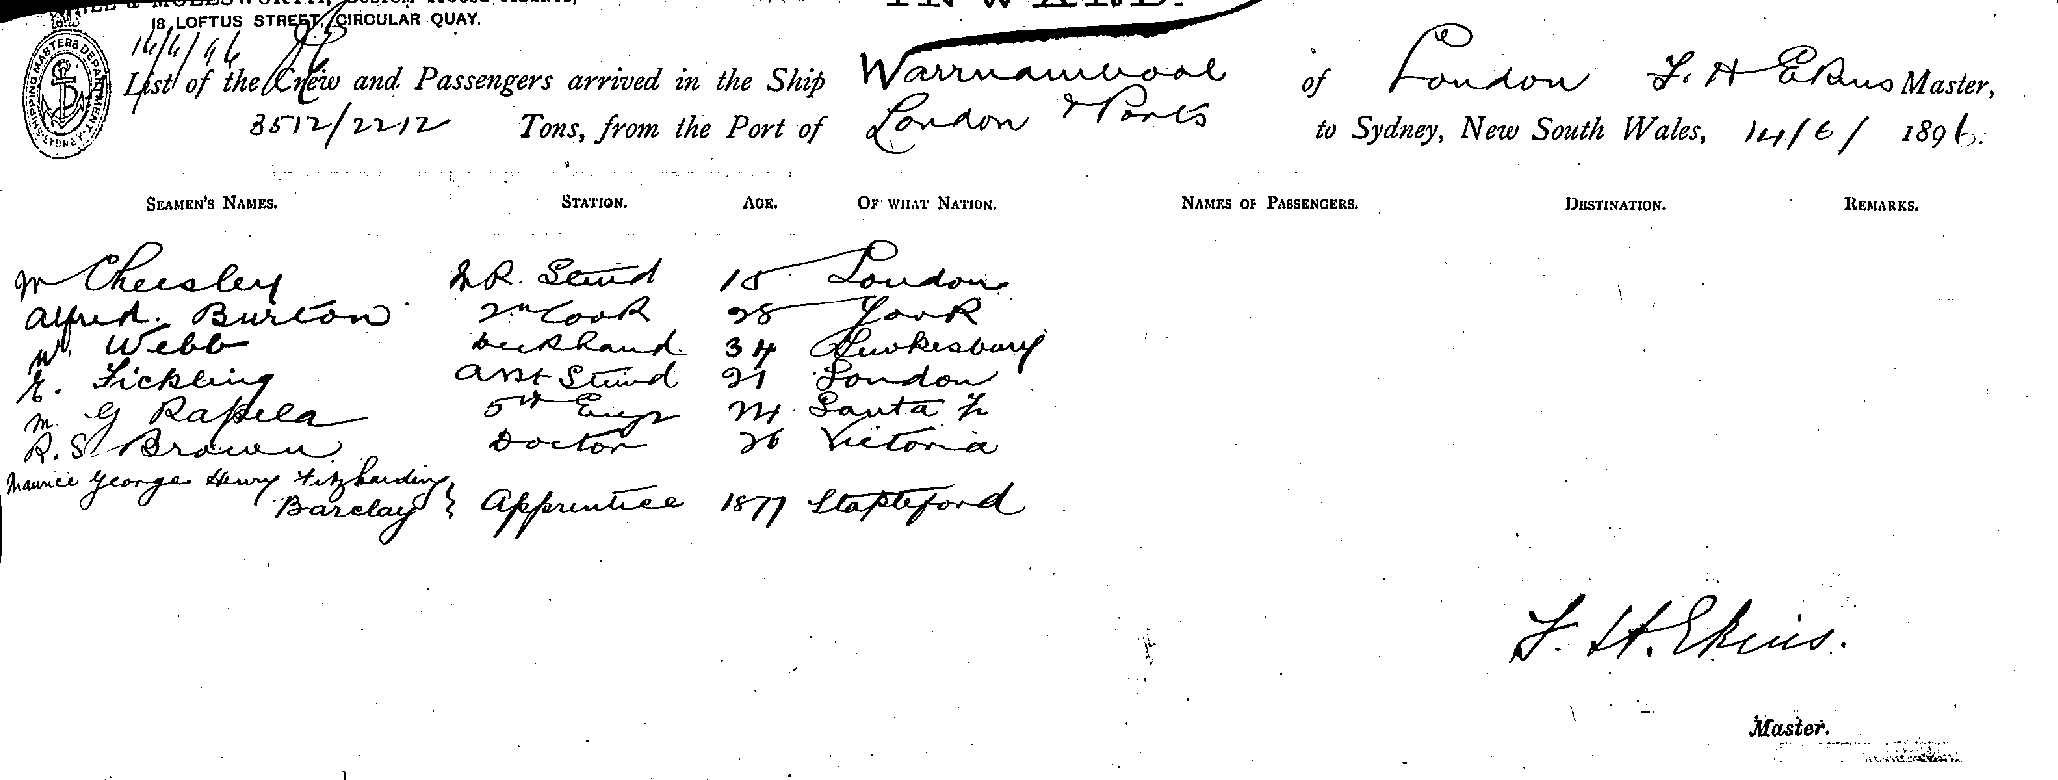 18, LOFTUS STREET, CIRCULAR QUAY.
14/6/96
List of the Crew and Passengers arrived in the Ship Warrnambool of London F. H Ekins Master,
3512/2212 Tons, from the Port of London & Ports to Sydney, New South Wales, 14/6/ 1896.
SEAMEN'S NAMES. STATION. AGE. OF WHAT NATION. NAMES OF PASSENGERS. DESTINATION. REMARKS.
Cheesley Steud 18 London
Alfred. Burton 2nd Cook 28 York
W. Webb Deckhand 34
E. Fickling Asst Steud 21 London
M. G Rapela 5th Engr 24 Santa Fe
R. S Brown Doctor 26 Victoria
Maurice George Henry Fitzharding
Barclay } Apprentice 1877 Stapleford
F. H. Ekins.
Master.